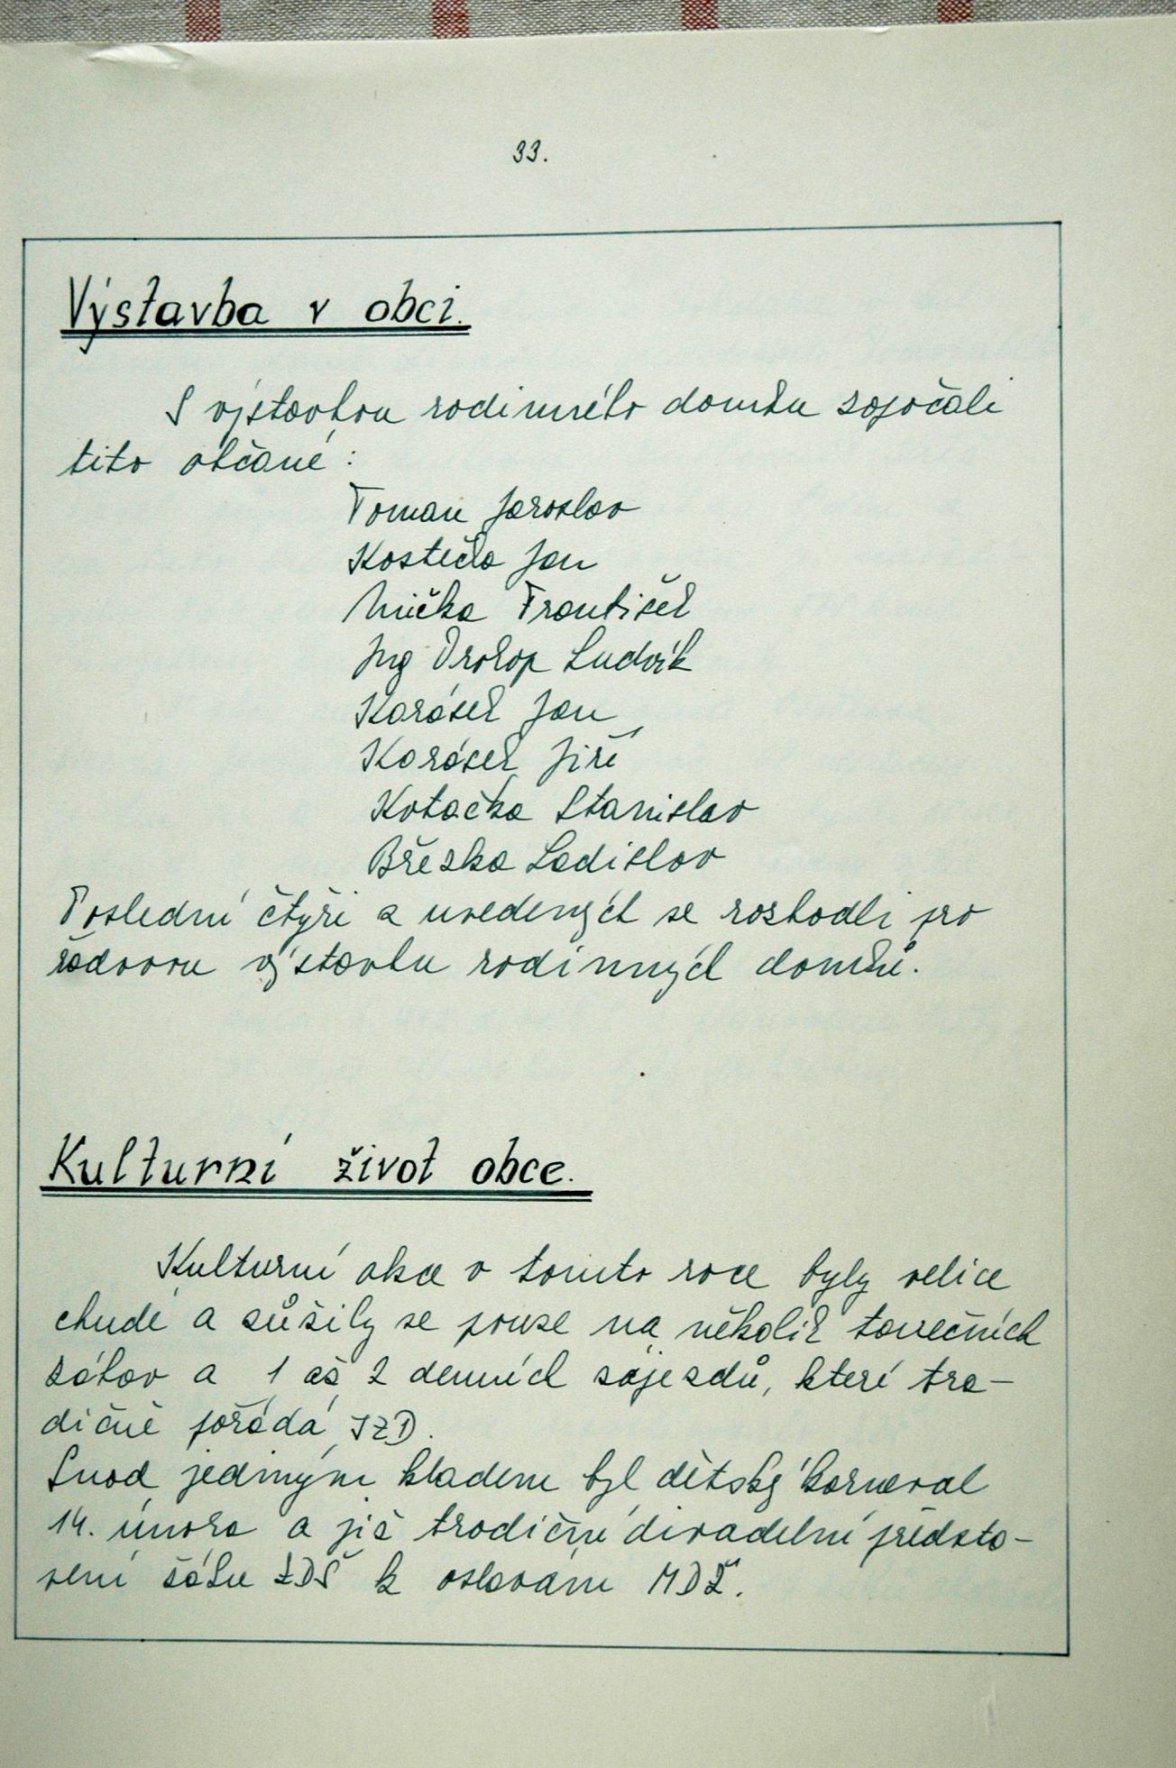 33.
Výstavba v obci.
S výstavbou rodinného domku započali
tito občané:
Toman Jaroslav
Kostečka Jan
Mička František
Ing Prokop Ludvík
Karásek Jan
Karásek Jiří
Kotačka Stanislav
Březka Ladislav
Poslední čtyři z uvedených se rozhodli pro
řadovou výstavbu rodinných domků.
Kulturní život obce.
Kulturní akce v tomto roce byly velice
chudé a zúžily se pouze na několik tanečních
zábav a 1 až 2 denních zájezdů, které tra-
dičně pořádá JZD.
Snad jediným kladem byl dětský karneval
14. února a již tradiční divadelní předsta-
vení žáků ZDŠ k oslavám MDŽ.